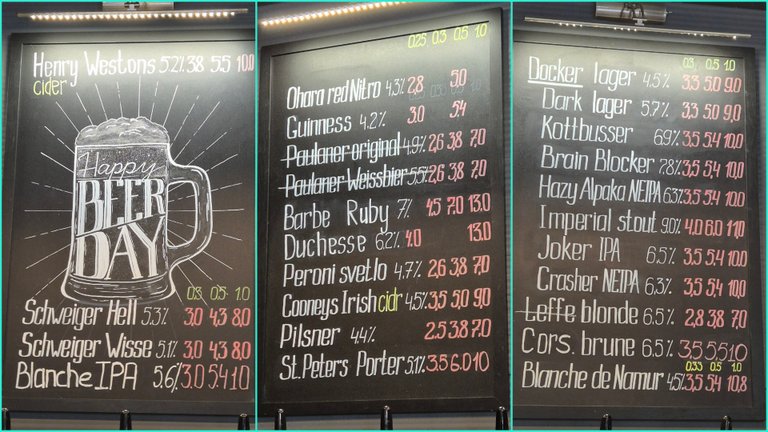 Henry Westons 5.2% 3.8 5.5 10.0
cider
Happy
BEER
DAY
0.3 0.5 1.0
Schweiger Hell 5.3% 3,0 4,3 8,0
Schweiger Wisse 5.1% 3,0 4,3 8,0
Blanche IPA 5.6% 3.0 5.4 10
0.25 0.3 0.5 1.0
Ohara red Nitro 4.3% 2,8 5.0
Guinness 4.2% 3.0 5.4
Paulaner original 4.9% 2,6 3,8 7,0
Paulaner Weissbier 5.5% 2,6 3,8 7,0
Barbe Ruby 7% 4.5 7.0 13.0
Duchesse 6.2% 4.0 13.0
Peroni svetlo 4.7% 2,6 3,8 7,0
Cooneys Irish cidr 4,5% 3,5 5,0 9,0
Pilsner 4.4% 2.5 3.8 7.0
St. Peter's Porter 5.1% 3.5 6.0 10
0.3 0.5 1.0
Docker lager 4.5% 3,3 5.0 9,0
Dark lager 5.7% 3,3 5.0 9,0
Kottbusser 6.9% 3,5 5,4 10,0
Brain Blocker 7.8% 3,5 5,4 10,0
Hazy Alpaka NEIPA 6.3% 3,5 5,4 10,0
Imperial stout 9.0% 4.0 6.0 11,0
Joker IPA 6.5% 3,5 5.4 10.0
Crasher NEIPA 6.3% 3,5 5,4 10,0
Leffe blonde 6.5% 2,8 3,8 7,0
Cors. brune 6.5% 3,5 5,5 10
0.33 0.5 1.0
Blanche de Namur 4.5% 3,5 5,4 10,8